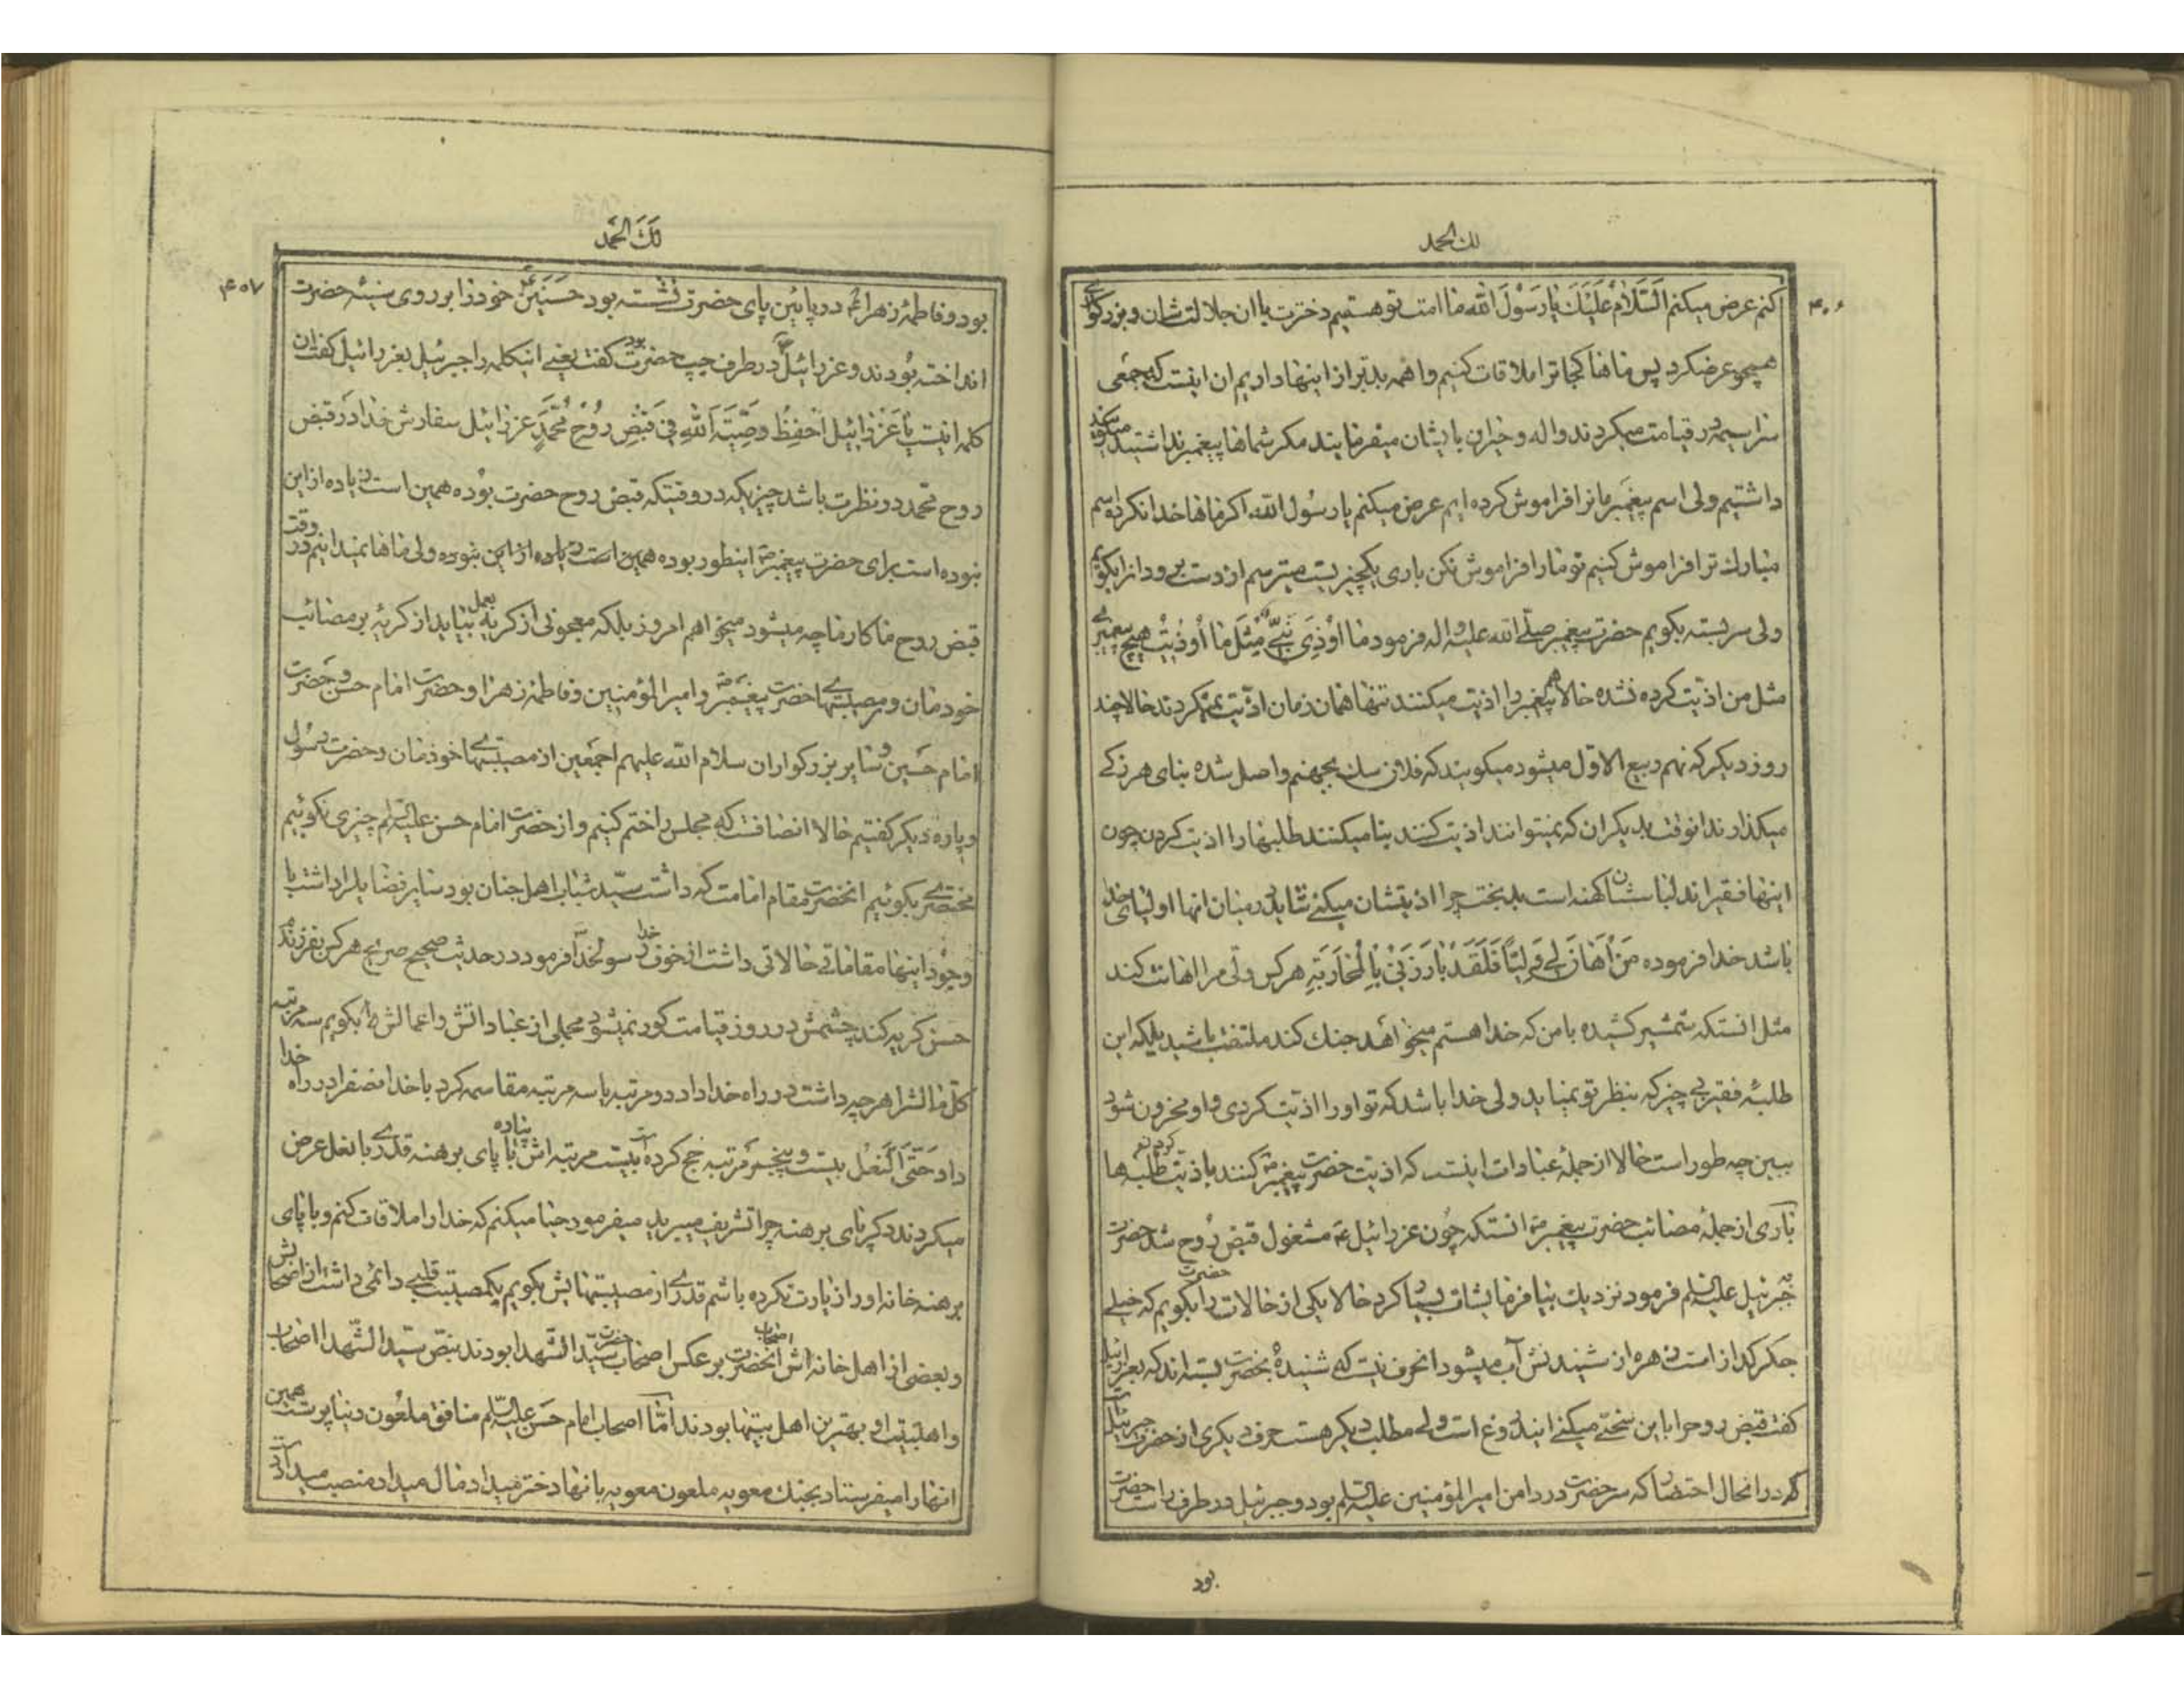 لك الحمد
۴۰۶
کنم عرض میکنم اَلسَّلامُ عَلَیْكَ یا رَسُولَ الله ما امت تو هستیم دخترت با ان جلالت شان و بزرگواری
همچو عرضکرد پس ماها کجا ترا ملاقات کنیم واهمه بدتر از اینها داریم ان اینست که جمعی
سراسیمه در قیامت میگردند واله و حیران بایشان میفرمایند مگر شماها پیغمبر نداشتید میگویند
داشتیم ولی اسم پیغمبرمانرا فراموش کرده ایم عرض میکنم یا رسول الله اگر ماها خدا نکرده اسم
مبارك ترا فراموش کنیم تو ما را فراموش نکن باری یکچیزیست میترسم از دست برود انرا بگویم
ولی سر بسته بگویم حضرت پیغمبر صلّی الله علیه و اله فرمود ما اُوْذِیَ نَبِیٌّ مِثْلَ ما اُوذیتُ هیچ پیغمبری
مثل من اذیّت کرده نشده حالا هم پیغمبر را اذیت میکنند تنها همان زمان اذیّت نمیکردند حالا چند
روز دیگر که نهم ربیع الاوّل میشود میگویند که فلان سك بجهنم واصل شده بنای هرزکی
میگذارند انوقت بدیگران که نمیتوانند اذیت کنند بنا میکنند طلبها را اذیت کردن چون
اینها فقیراند لباسشان کهنه است بدبخت چرا اذیتشان میکنی شاید در میان انها اولیای خدا
باشد خدا فرموده مَنْ اَهانَ لی وَلِیّاً فَلَقَدْ بارَزَنی بِالْمُحارَبَةِ هر کس ولّی مرا اهانت کند
مثل انستکه شمشیر کشیده با من که خدا هستم میخواهد جنك کند ملتفت باشید بلکه این
طلبهٔ فقیر بی چیز که بنظر تو نمیاید ولی خدا باشد که تو او را اذیّت کردی و او محزون شود
ببین چه طور است حالا از جملهٔ عبادات اینست که اذیت حضرت پیغمبر ص کنند باذیّت کردن طلبه ها
باری از جملهٔ مصائب حضرت پیغمبر ص انستکه چون عزرائیل ع مشغول قبض روح شد حضرت
بجبرئیل علیه السلم فرمود نزدیك بیا فرمایشات بسیار کرد حالا یکی از حالات حضرت را بگویم که خیلی
جگر گداز است زهره از شنیدنش آب میشود انحرف نیست که شنیدهٔ بحضرت بسته اند که بعزرائیل
گفت قبض روح را باین سختی میکنی این دروغ است ولی مطلب دیگر هست حرف دیگری از حضرت جبرئیل
که در انحال احتضار که سر حضرت در دامن امیر المؤمنین علیه السلم بود و جبرئیل در طرف راست حضرت
بود
لَكَ الْحَمد
۴۰۷
بود و فاطمهٔ زهراء ع در پائین پای حضرت نشسته بود حَسَنَیْن ع خود را بر روی سینهٔ حضرت
انداخته بودند و عزرائیل در طرف چپ حضرت بود گفت یعنی اینکلمه را جبرئیل بعزرائیل گفت ان
کلمه اینست یا عَزْرائیلُ اِحْفِظْ وَصِیَّةَ اللهِ فی قَبْضِ رُوُحِ مُحَمَّدٍ عزرائیل سفارش خدا در قبض
روح محمد در نظرت باشد چیزیکه در وقتیکه قبض روح حضرت بوده همین است زیاده از این
نبوده است برای حضرت پیغمبر ص اینطور بوده همین است زیاده از این نبوده ولی ماها نمیدانیم در وقت
قبض روح ما کار ما چه میشود میخواهم امروز بلکه معجونی از گریه بعمل بیاید از گریهٔ بر مصائب
خودمان و مصیبتهای حضرت پیغمبر ص و امیر المؤمنین و فاطمهٔ زهرا و حضرت امام حسن و حضرت
امام حسین و سایر بزرگواران سلام الله علیهم اجمعین از مصیبتهای خودمان و حضرت رسول
و پارهٔ دیگر گفتیم حالا انصافست که مجلس را ختم کنیم و از حضرت امام حسن علیه السلم چیزی نگوئیم
مختصری بگوئیم انحضرت مقام امامت که داشت سیّد شباب اهل جنان بود سایر فضایل را داشت با
وجود اینها مقاماتی حالاتی داشت از خوف خدا رسولخدا فرمود در حدیث صحیح صریح هر کس بفرزندم
حسن گریه کند چشمش در روز قیامت کور نمیشود مجملی از عباداتش و اعمالش را بگویم سه مرتبه
کل مالشرا هر چه داشت در راه خدا داد دو مرتبه یا سه مرتبه مقاسمه کرد با خدا نصفرا در راه خدا
داد حَتَّی الَّنعْل بیست و پنج مرتبه حج کرده است بیست مرتبه اش پیاده با پای برهنه قدری با نعل عرض
میکردند دیگر پای برهنه چرا تشریف میبرید میفرمود حیا میکنم که خدا را ملاقات کنم و با پای
برهنه خانه او را زیارت نکرده باشم قدری از مصیبتهایش بگویم یکمصیبت قلبی دائمی داشت از اصحابش
و بعضی از اهل خانه اش اصحاب انحضرت بر عکس اصحاب حضرت سیّد الشهدا بودند بنصّ سیّد الشّهدا اصحاب
و اهلبیت او بهترین اهل بیتها بودند امّا اصحاب امام حسن علیه السّلم منافق ملعون دنیا پرست همین
انها را میفرستاد بجنك معویه ملعون معویه بانها دختر میداد مال میداد منصب میداد